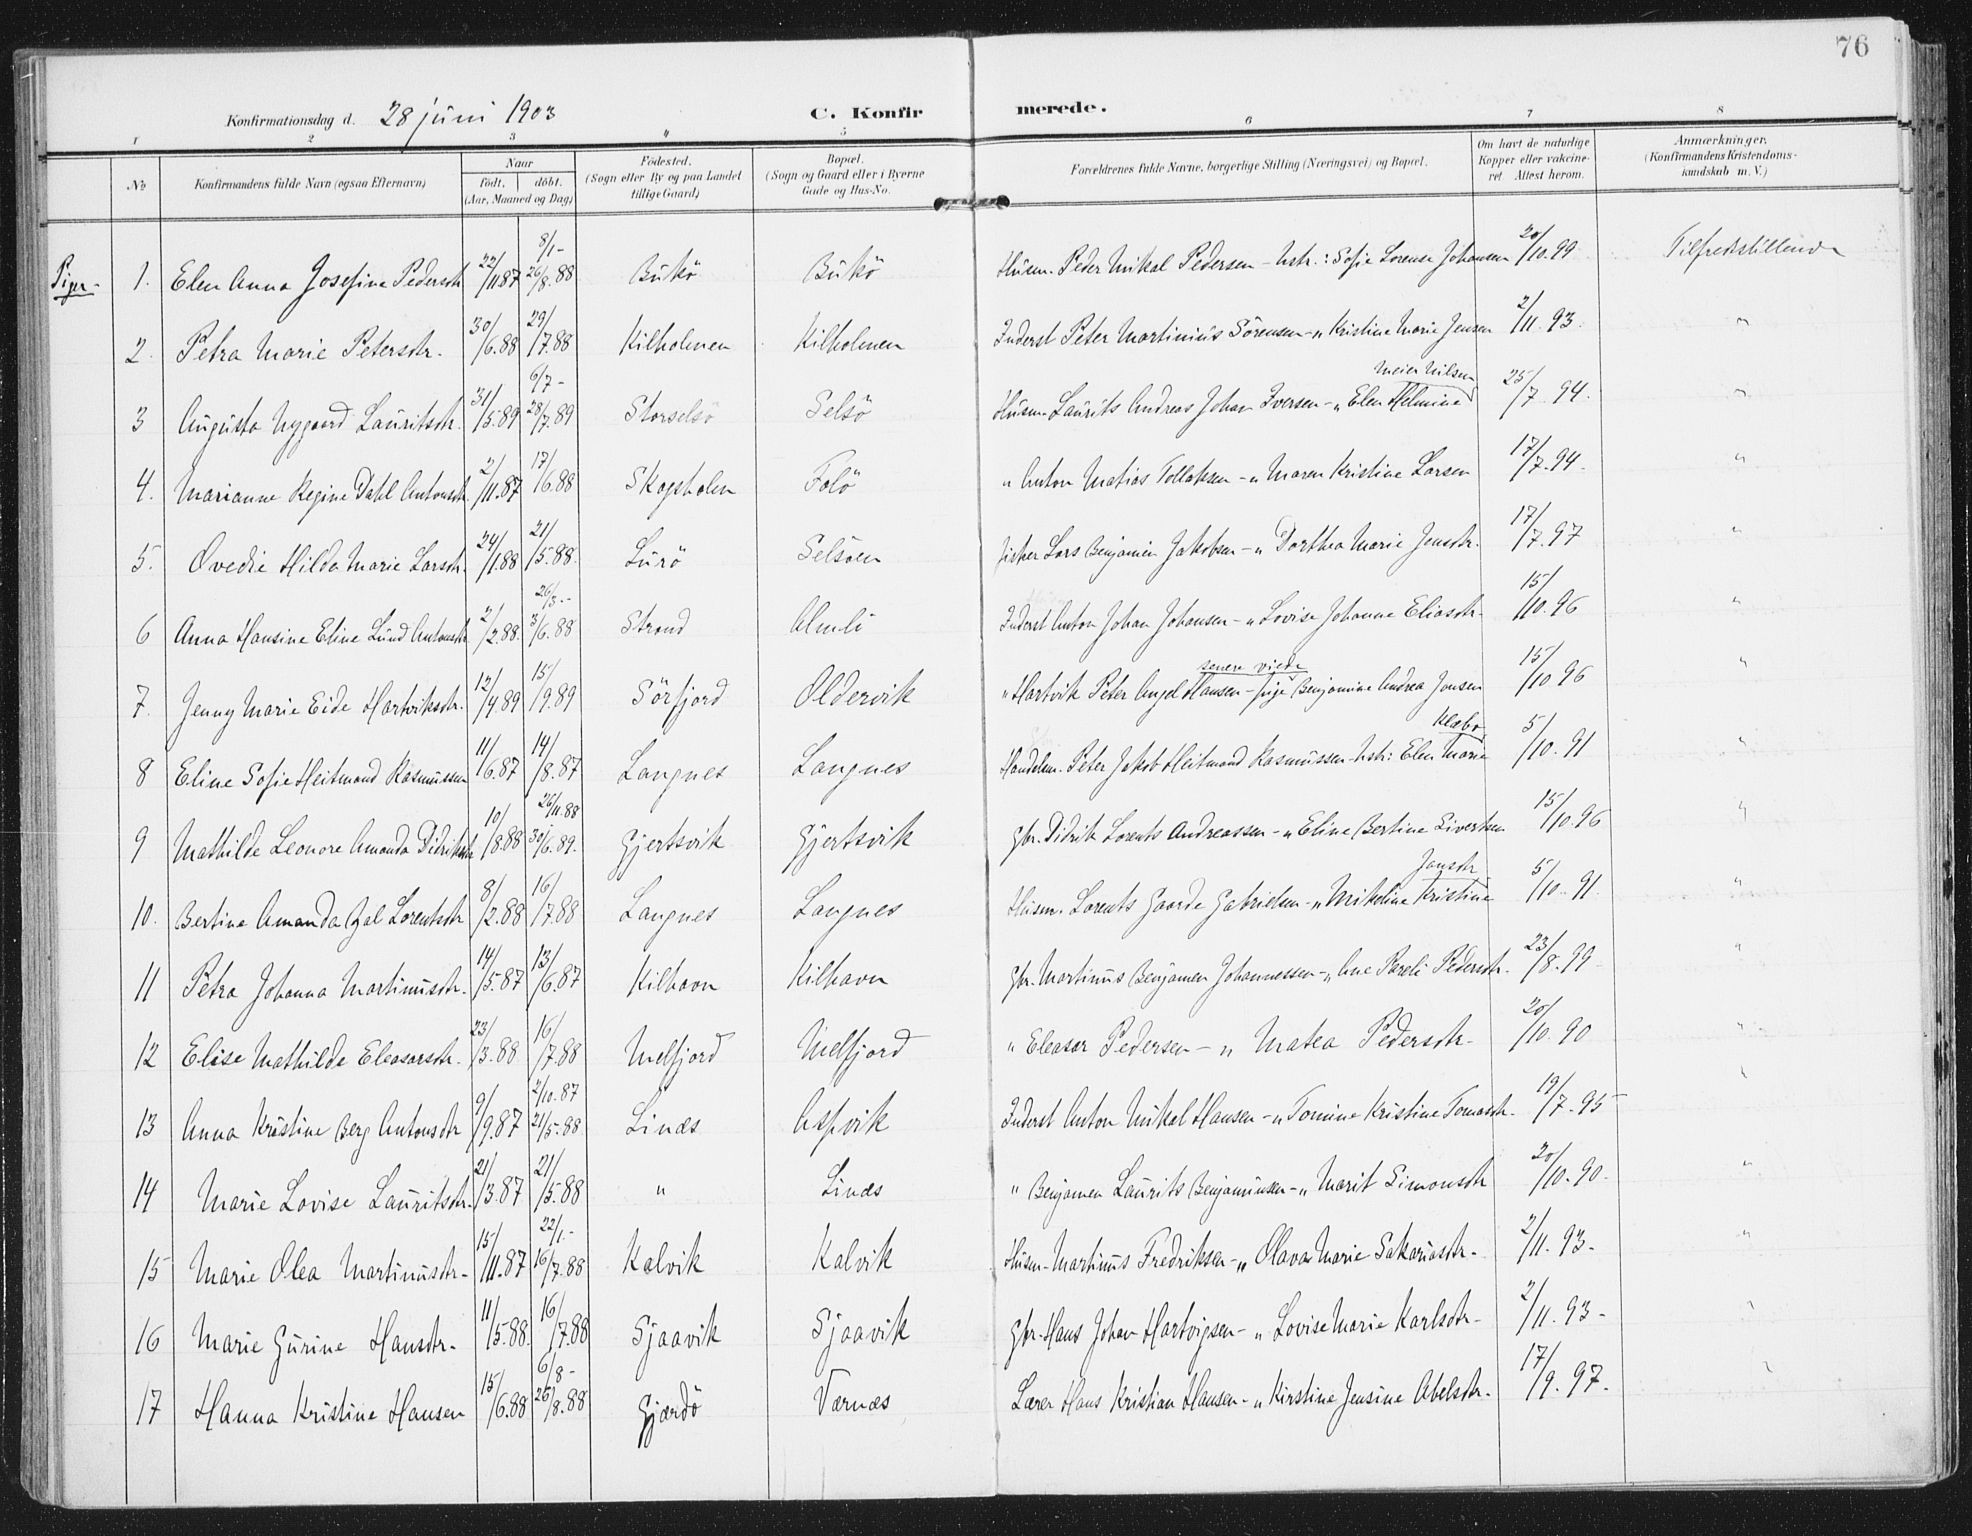 76
Konfirmationsdag d. 28 juni 1903 C. Konfir merede.
1 2 3 " 5 6 7 8
No Konfirmandens fulde Navn (ogsaa Efternavn) Naar født. døbt. (Aar, Maaned og Dag) Fødested. (Sogn eller By og paa Landet tillige Gaard) Bopæl. (Sogn og Gaard eller i Byerne Gade og Hus-No. Forældrenes fulde Navne, borgerlige Stilling (Næringsvei) og Bopæl. Om havt de naturlige Kopper eller vakcineret. Attest herom. Anmærkninger. (Konfirmandens Kristendomskundskab m. V.)
Piger- 1. Elen Anna Josefine Pedersdtr 22/11.87 8/1- 26/8.88 Bukö Bukö Husm. Peder Mikal Pedersen - hstr.: Sofie Lorense Johansen 20/10.99 Tilfredstillende
2. Petra Marie Petersdtr. 30/6.88 29/7.88 Kilholmen Kilholmen Inderst Peter Martinius Sörensen - " Kristine Marie Jensen 2/11.93. "
3 Augusta Nygaard Lauritsdtr. 31/5.89 6/7- 28/7.89 Storselsö Selsö Husm. Laurits Andreas Johan Iversen - " Elen Helmine Meier Nilsen 25/7.94. "
4. Marianne Regine Dahl Antonsdtr. 2/11.87 17/6.88 Skogsholm Folö " Anton Matias Tollaksen - " Maren Kristine Larsen 17/7.94. "
5. Ovedie Hilda Marie Larsdtr. 24/1.88 21/5.88. Lurö Selsöen fisker Lars Benjamin Jakobsen - " Dorthea Marie Jensdtr. 17/7.97 "
6 Anna Hansine Eline Lund Antonsdtr 2/2.88. 26/3-- 3/6.88 Strand Almli Inderst Anton Johan Johansen - " Lovise Johanne Eliasdtr. 15/10.96 "
7. Jenny Marie Eide Hartviksdtr. 12/4.89 15/9.89 Sörfjord Oldervik " Hartvik Peter Angel Hansen - senere viede pige Benjamine Andrea Jensen 15/10 96 "
8 Eline Sofie Heitmand Rasmussen 11/6.87 14/8.87 Langnes Langnes Handelsm. Peter Jakob Heitmand Rasmussen hstr: Elen Marie Klæbo 5/10.91 "
9 Mathilde Leonore Amanda Didriksdtr 10/8.88 26/11.88 30/6.89. Gjertsvik Gjertsvik Gbr. Didrik Lorents Andreassen - " Eline Bertine Sivertsen 15/10.96 "
10. Bertine Amanda Gal Lorentsdtr 8/2.88 16/7.88 Langnes Langnes Husm. Lorents Gaarde Gabrielsen - " Mikoline Kristine Jonsdtr 5/10.91. "
11 Petra Johanna Martinusdtr. 14/5.87 13/6.87 Kilhavn Kilhavn Gbr. Martinus Benjamen Johannessen - " Ane Pareli Pedersdtr. 23/8.99 "
12 Elise Mathilde Eleasarsdtr. 23/3.88 16/7.88 Melfjord Melfjord " Eleasar Pedersen - " Matea Pedersdtr - 20/10.90 "
13 Anna Kristine Berg Antonsdtr 9/9.87 2/10.87 21/5.88 Linæs Aspvik Inderst Anton Mikal Hansen - " Tomine Kristine Tomasdtr. 19/7.95 "
14 Marie Lovise Lauritsdtr. 21/3.87 21/5.88 " Linæs " Benjamen Laurits Benjaminsen - " Marit Simonsdtr 20/10.90. "
15 Marie Olea Martinusdtr- 15/11.87 22/1.- 16/7.88 Kalvik Kalvik Husm - Martinus Fredriksen - " Olava Marie Sakariasdtr. - 2/11.93. "
16 Marie Gurine Hansdtr. 11/5.88. 16/7.88 Sjaavik Sjaavik Gbr. Hans Johan Hartvigsen - " Lovise Marie Karlsdtr- 2/11.93- "
17 Hanna Kristine Hansen 15/6.88 6/8- 26/8.88 Gjærdö Værnæs Lærer Hans Kristian Hansen - " Kirstine Jensine Abelsdtr. 17/9.97. "